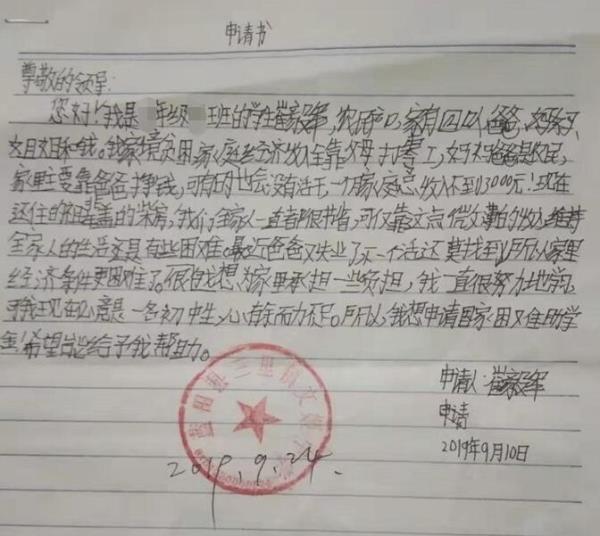 申请书
尊敬的领导:
您好!我是 年级 班的学生崔毅军,农民户口,家有四口人,爸爸,妈妈
姐姐和我。我家境贫困,家庭经济收入全靠父母打零工,妈妈爸爸是农民,
家里主要靠爸爸挣钱,可有时也会没有活干,一个月家庭总收入不到3000元!现在
还住的祖辈盖的柴房,我们全家人一直都很节省,可仅靠这点微薄的收入维持
全家人的生活还是有些困难。最近爸爸又失业了,下一个活还莫找到,所以家里
经济条件更困难了。很想为家里承担一些负担,我一直很努力地学习
我现在只是一名初中生,心有余而力不足。所以,我想申请国家困难助学
金!希望能给予我帮助。
申请人:崔毅军
申请
2019年9月10日
2019.9.24.